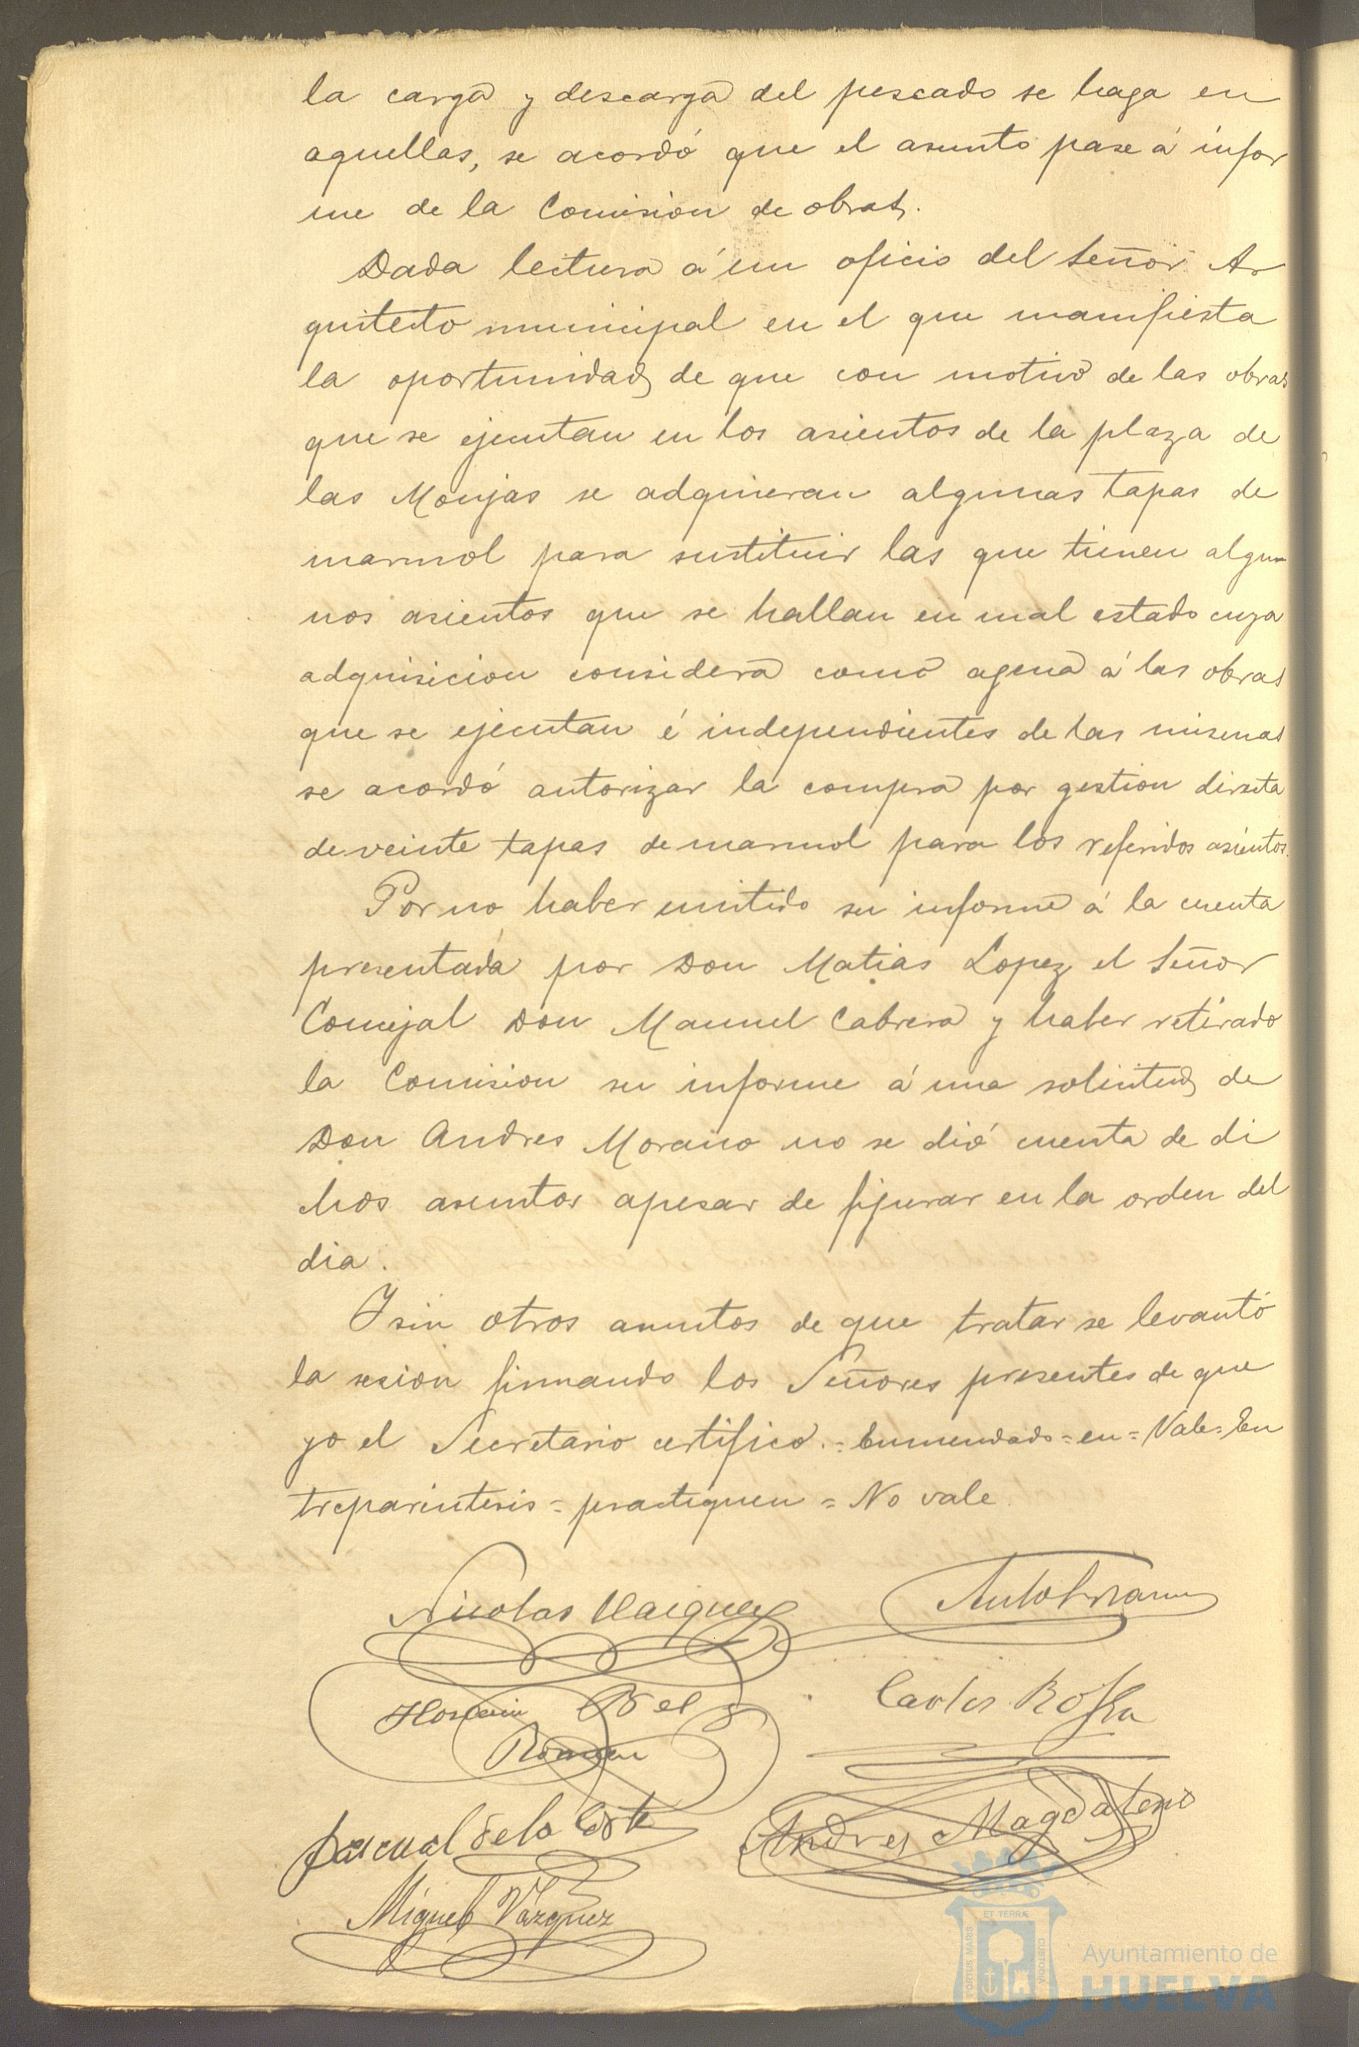 la carga y descarga del pescado se haga en
aquellas, se acordó que el asunto pase á infor
me de la Comision de obras.
Dada lectura á un oficio del Señor Ar
quitecto municipal en el que manifiesta
la oportunidad de que con motivo de las obras
que se ejecutan en los asientos de la plaza de
las Monjas se adquieran algunas tapas de
marmol para sustituir las que tienen algu
nos asientos que se hallan en mal estado cuya
adquisicion considera como agena á las obras
que se ejecutan é independientes de las mismas
se acordó autorizar la compra por gestion directa
de veinte tapas de marmol para los referidos asientos.
Por no haber emitido su informe á la cuenta
presentada por Don Matias Lopez el Señor
Concejal Don Manuel Cabrera y haber retirado
la Comision su informe á una solicitud de
Don Andres Moraño no se dió cuenta de di
chos asuntos apesar de figurar en la orden del
dia.
Y sin otros asuntos de que tratar se levantó
la sesion firmando los Señores presentes de que
yo el Secretario certifico.= Enmendado=en=Vale=En
treparintesis=practiquen=No vale
Nicolas Vazquez
Carlos
Roman
Pascual de la Corte
Andres Magdaleno
Miguel Vázquez
PORTUS MARIS
ET TERRÆ
CUSTODIA
Ayuntamiento de
HUELVA